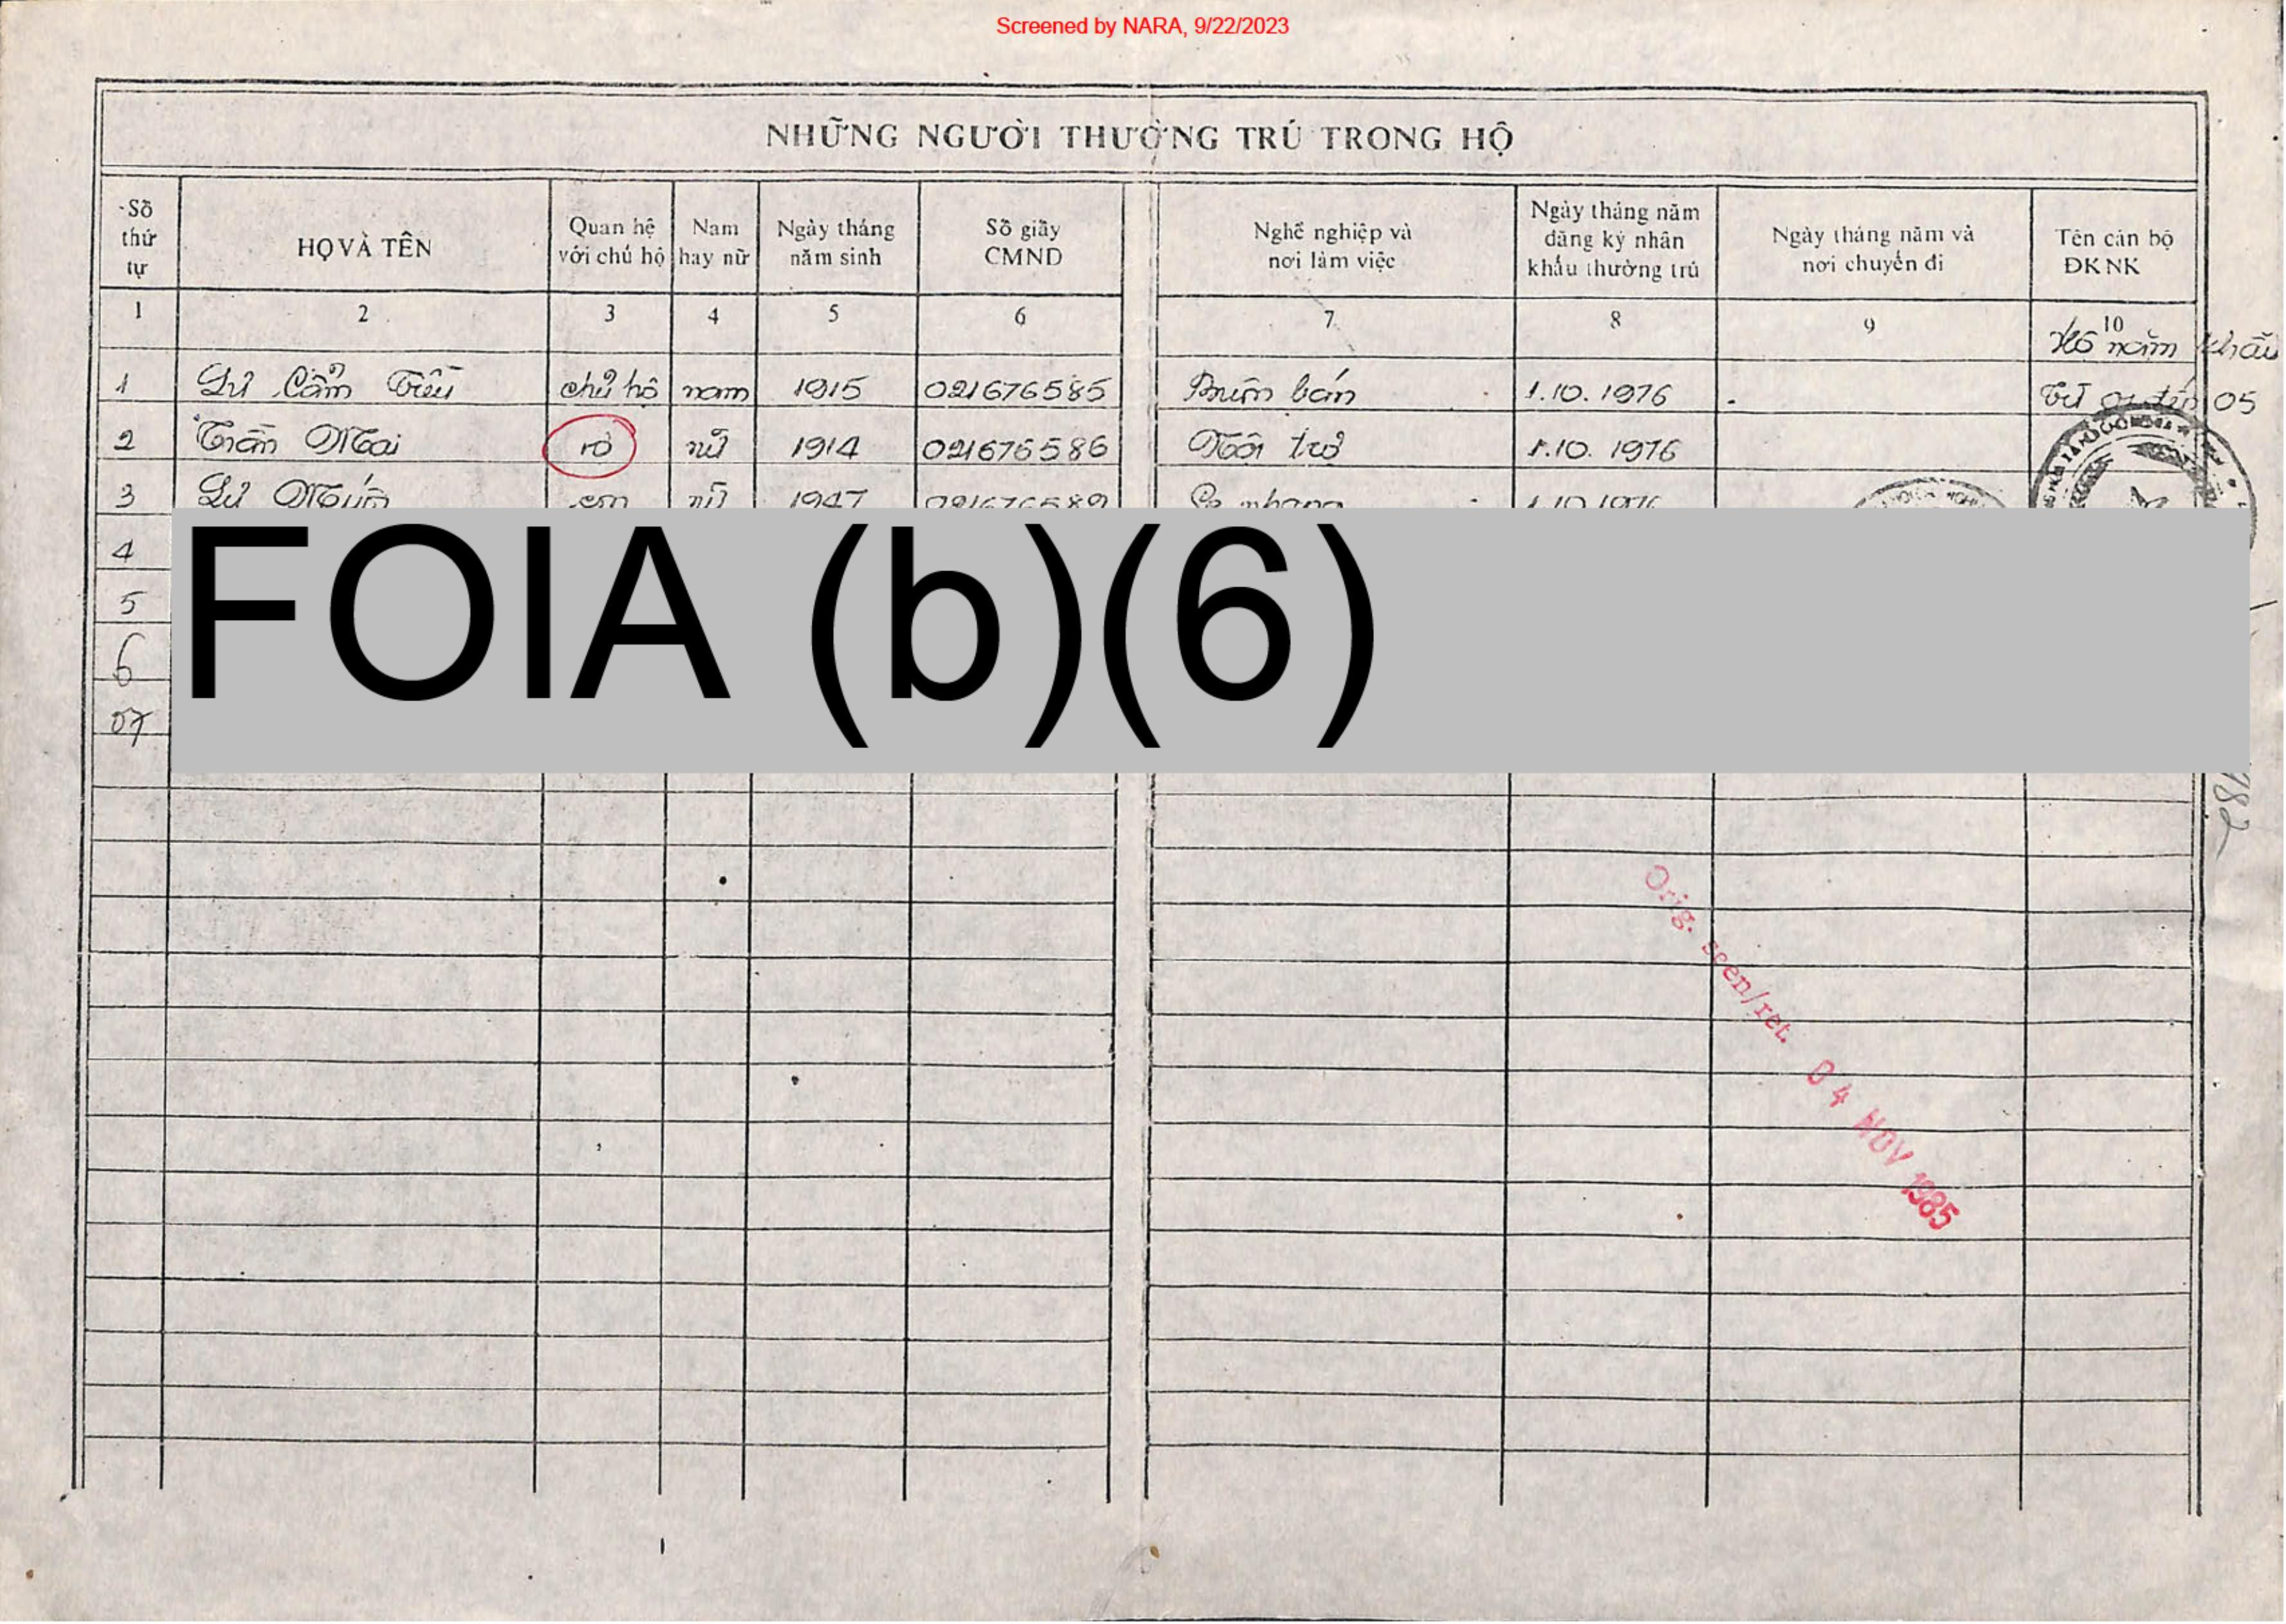 Screened by NARA, 9/22/2023
NHỮNG NGƯỜI THƯỜNG TRÚ TRONG HỘ
Số thứ tự
HỌ VÀ TÊN
Quan hệ với chủ hộ
Nam hay nữ
Ngày tháng năm sinh
Số giấy CMND
Nghề nghiệp và nơi làm việc
Ngày tháng năm đăng ký nhân khẩu thường trú
Ngày tháng năm và nơi chuyển đi
Tên cán bộ ĐKNK
1 2 3 4 5 6 7 8 9 10
Hộ năm khẩu
1 Lư Cẩm chủ hộ nam 1915 021676585 Buôn bán 1.10.1976 Từ 01 đến 05
2 Trần Mai nữ 1914 021676586 Nội trợ 1.10.1976
3 Lư con nữ 1947 1.10.1976
4
5
6
07
FOIA (b)(6)
Orig. seen/ret. 04 NOV 1985